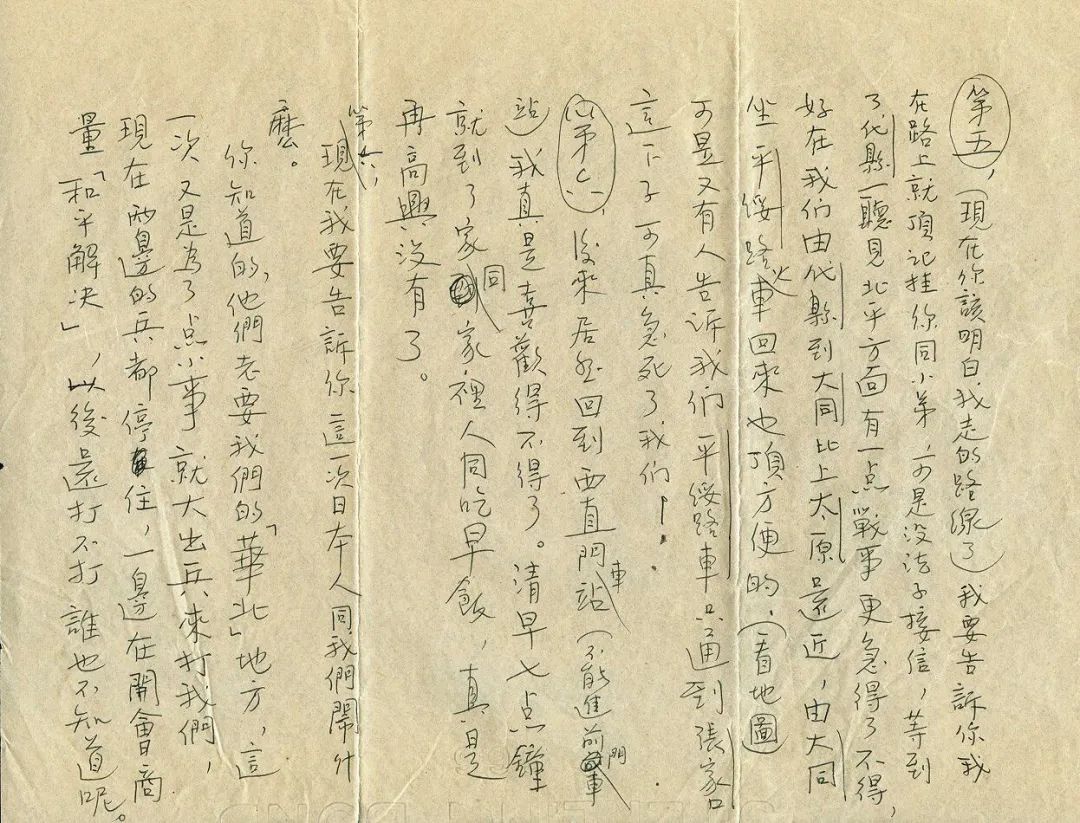 第五，（現在你該明白我走的路線了）我要告訴你我
在路上就頂記挂你同小弟，可是没法子接信，等到
了代縣一聽見北平方面有一点戰事更急得了不得，
好在我们由代縣到大同比上太原還近，由大同
坐平綏路火車回來也頂方便的，（看地圖）
可是又有人告訴我们平綏路車只通到張家口
這下子可真急死了我们！
第六，後來居然回到西直門車站（不能進前門車
站）我真是喜歡得不得了。清早七点鐘
就到了家，同家裡人同吃早飯，真是
再高興没有了。
第六，現在我要告訴你這一次日本人同我們鬧什
麽。
你知道的，他們老要我們的「華北」地方，這
一次又是為了点小事就大出兵來打我們，
現在兩邊的兵都停住，一邊在開會商
量「和平解决」，以後還打不打誰也不知道呢。